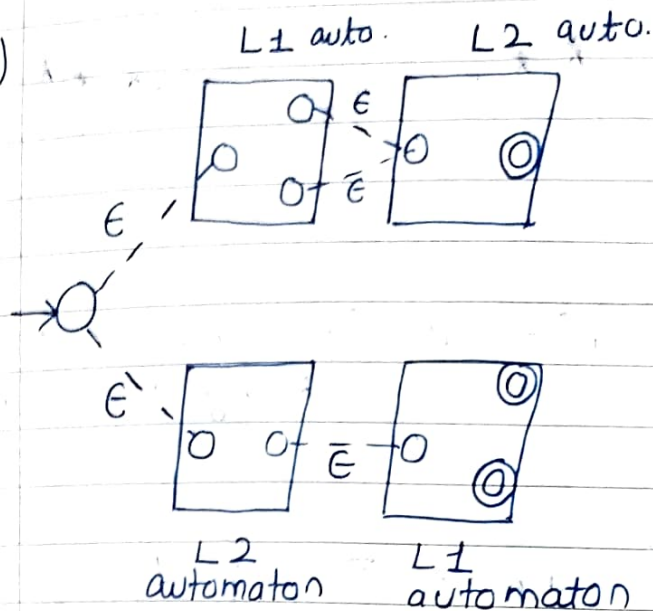 )
L1 auto. L2 auto.
ϵ
ϵ̄
ϵ
ϵ
ϵ̄
L2 automaton
L1 automaton